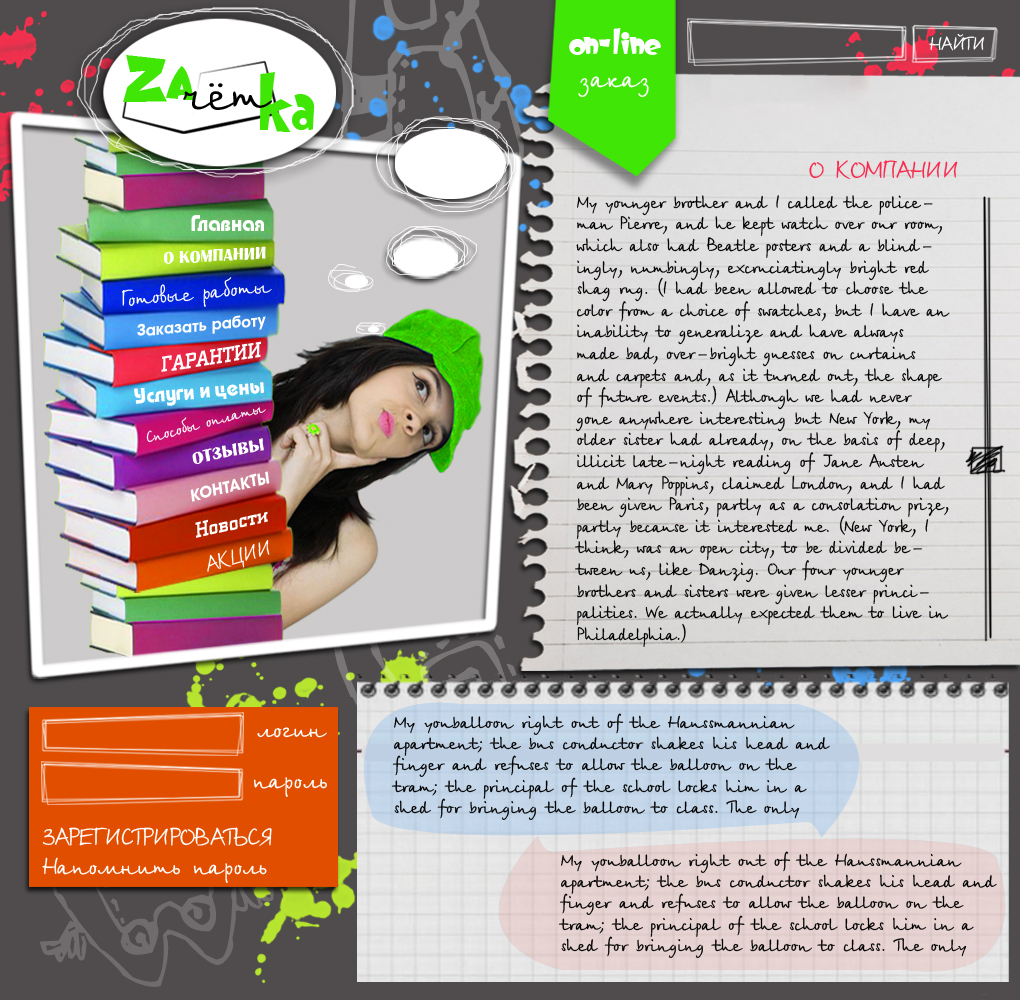 ZAчётka
on-line
заказ
НАЙТИ
Главная
О КОМПАНИИ
Готовые работы
Заказать работу
ГАРАНТИИ
Услуги и цены
Способы оплаты
ОТЗЫВЫ
КОНТАКТЫ
Новости
АКЦИИ
О КОМПАНИИ
My younger brother and I called the police-
man Pierre, and he kept watch over our room,
which also had Beatle posters and a blind-
ingly, numbingly, excruciatingly bright red
shag rug. (I had been allowed to choose the
color from a choice of swatches, but I have an
inability to generalize and have always
made bad, over-bright guesses on curtains
and carpets and, as it turned out, the shape
of future events.) Although we had never
gone anywhere interesting but New York, my
older sister had already, on the basis of deep,
illicit late-night reading of Jane Austen
and Mary Poppins, claimed London, and I had
been given Paris, partly as a consolation prize,
partly because it interested me. (New York, I
think, was an open city, to be divided be-
tween us, like Danzig. Our four younger
brothers and sisters were given lesser princi-
palities. We actually expected them to live in
Philadelphia.)
логин
пароль
ЗАРЕГИСТРИРОВАТЬСЯ
Напомнить пароль
My youballoon right out of the Haussmannian
apartment; the bus conductor shakes his head and
finger and refuses to allow the balloon on the
tram; the principal of the school locks him in a
shed for bringing the balloon to class. The only
My youballoon right out of the Haussmannian
apartment; the bus conductor shakes his head and
finger and refuses to allow the balloon on the
tram; the principal of the school locks him in a
shed for bringing the balloon to class. The only